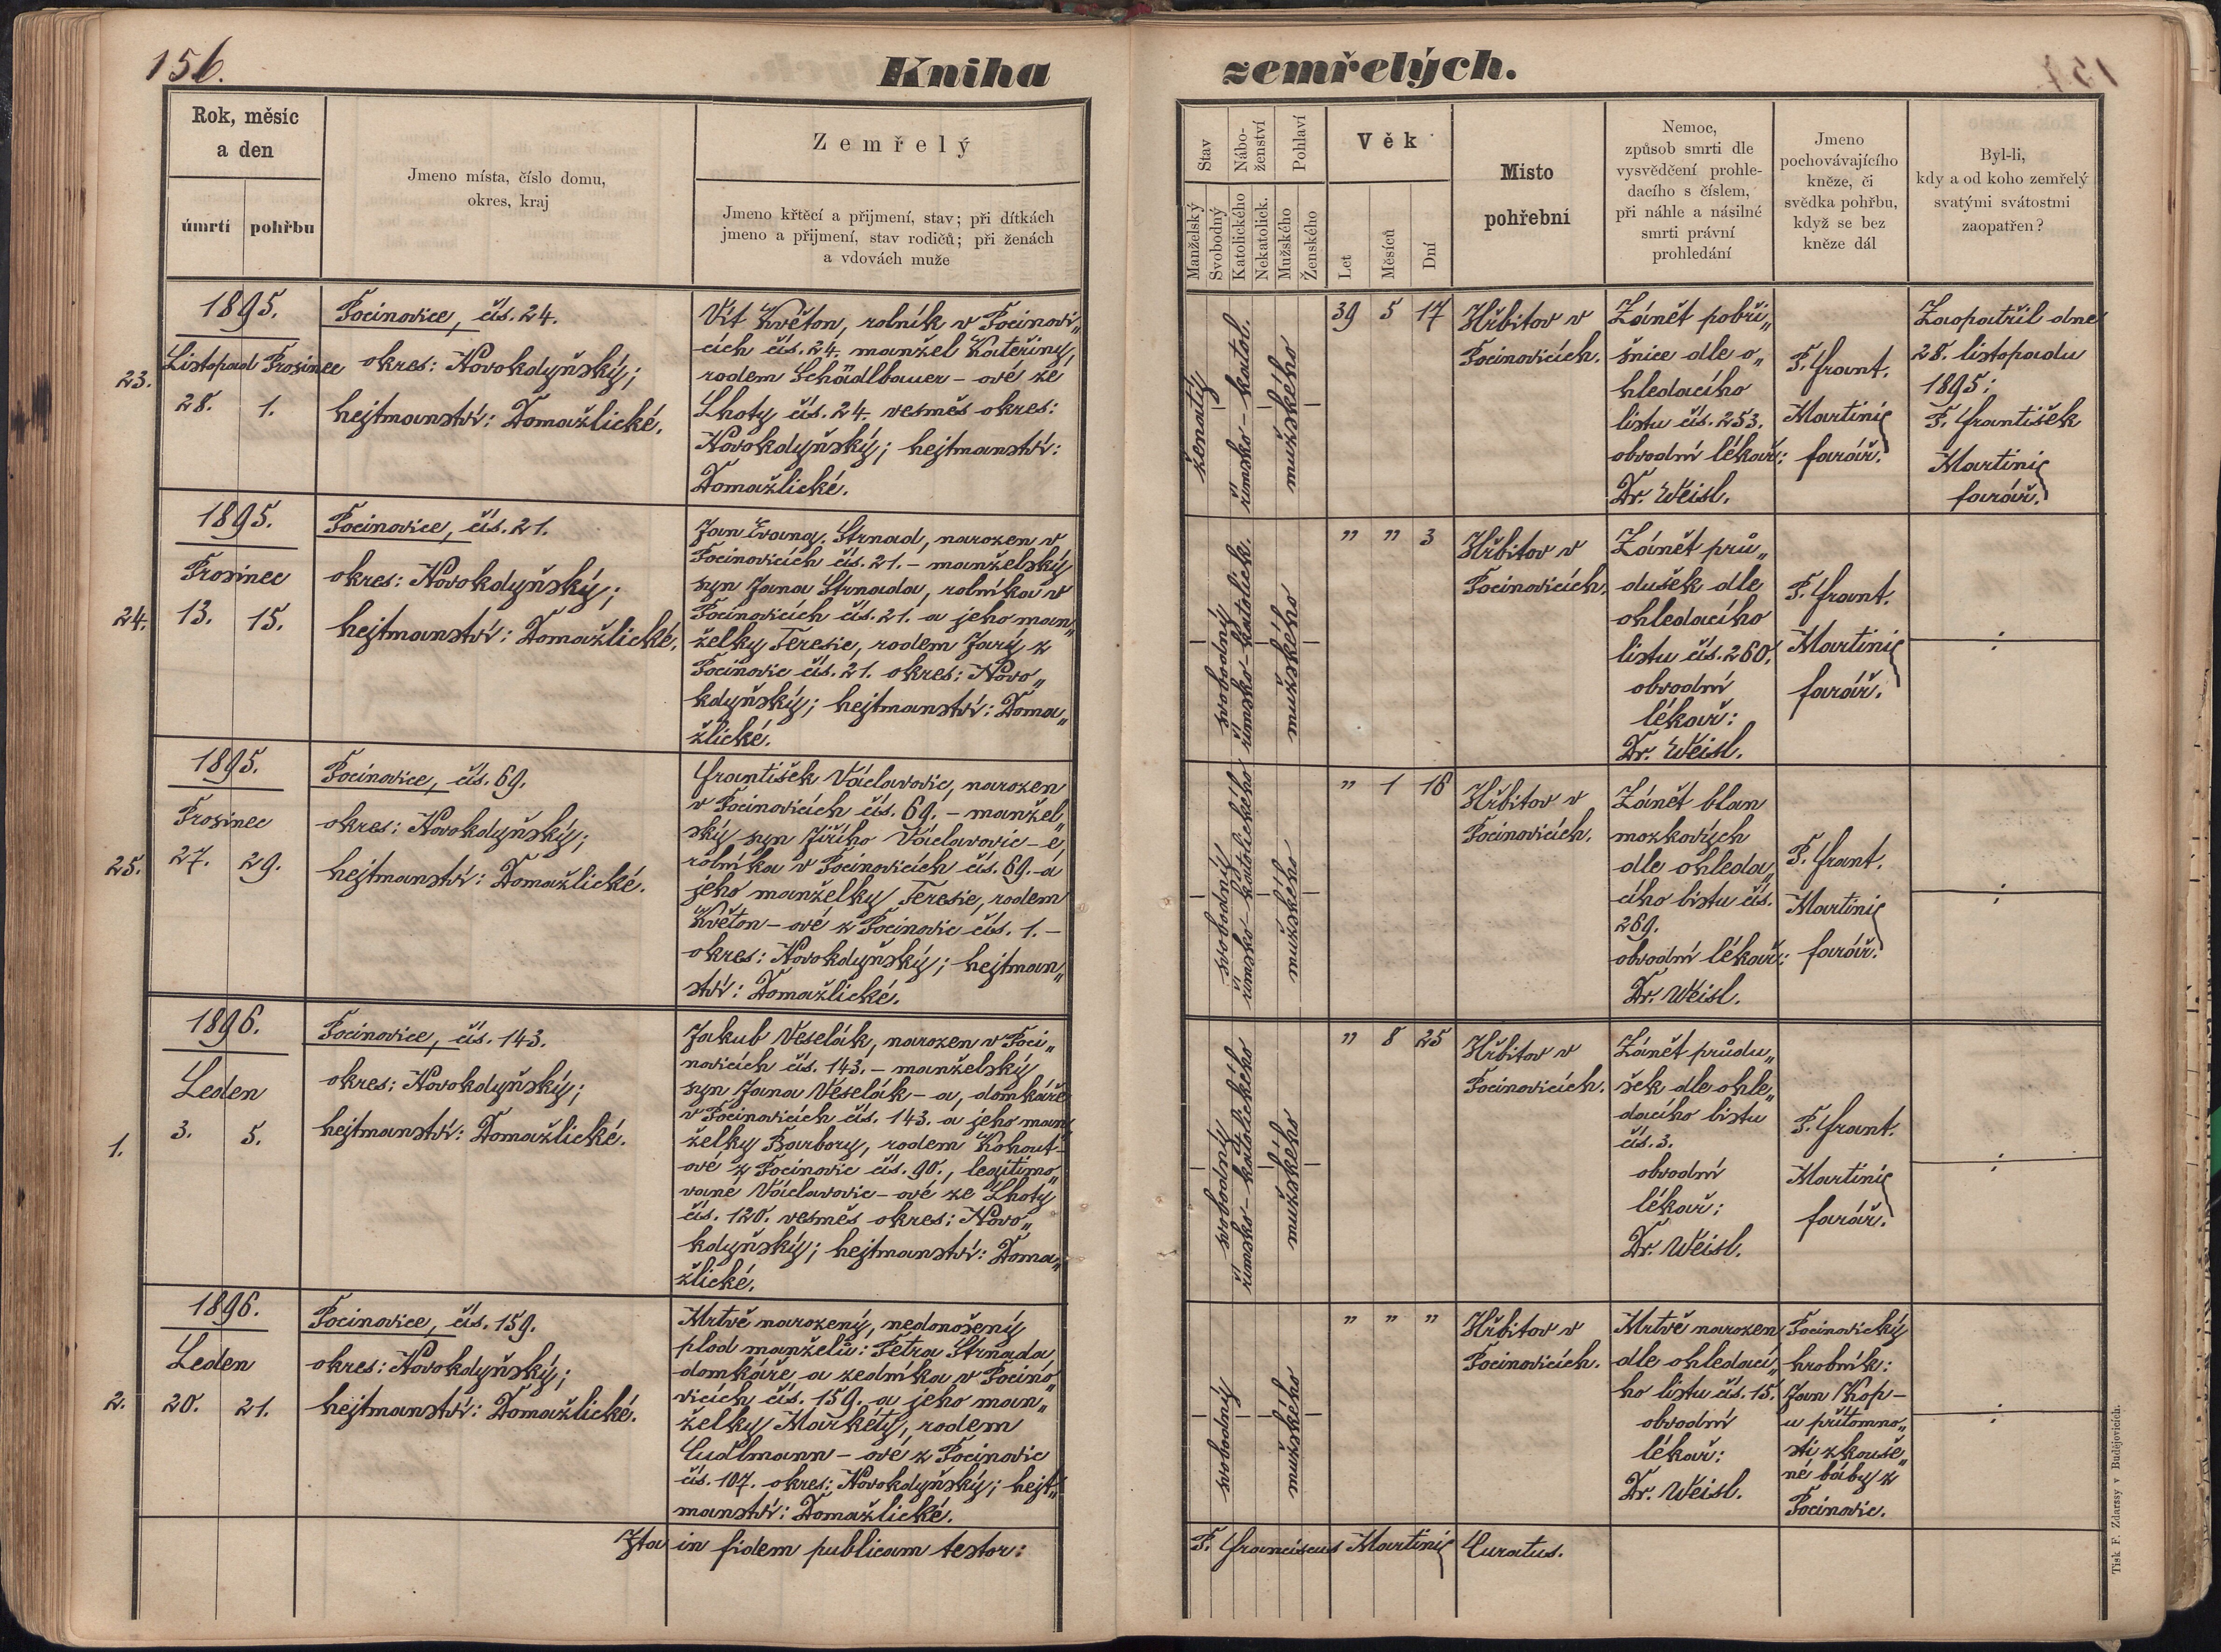 156.
Kniha
zemřelých.
Rok, měsíc
a den
úmrtí
pohřbu
Jmeno místa, číslo domu,
okres, kraj
Zemřelý
Jmeno křtěcí a přijmení, stav; při dítkách
jmeno a přijmení, stav rodičů; při ženách
a vdovách muže
Stav
Nábo-
ženství
Pohlaví
Manželský
Svobodný
Katolického
Nekatolick.
Mužského
Ženského
Věk
Let
Měsíců
Dní
Místo
pohřební
Nemoc,
způsob smrti dle
vysvědčení prohle-
dacího s číslem,
při náhle a násilné
smrti právní
prohledání
Jmeno
pochovávajícího
kněze, či
svědka pohřbu,
když se bez
kněze dál
Byl-li,
kdy a od koho zemřelý
svatými svátostmi
zaopatřen?
23.
1895.
Listopad Prosinec
28. 1.
Pocinovice, čís. 24.
okres: Novokdyňský;
hejtmanství: Domažlické.
Vít Květon, rolník v Pocinovi„
cích čís. 24. manžel Kateřiny,
rodem Schädlbauer - ové ze
Lhoty čís. 24. vesměs okres:
Novokdyňský; hejtmanství:
Domažlické.
ženatý
římsko - katol.
mužského
39 5 17
Hřbitov v
Pocinovicích.
Zánět pobři„
šnice dle o„
hledacího
listu čís. 253.
obvodní lékař:
Dr. Weisl.
P. Frant.
Martinic
farář.
Zaopatřil dne
28. listopadu
1895:
P. František
Martinic
farář.
24.
1895.
Prosinec
13. 15.
Pocinovice, čís. 21.
okres: Novokdyňský;
hejtmanství: Domažlické.
Jan Evang. Strnad, narozen v
Pocinovicích čís. 21. - manželský
syn Jana Strnada, rolníka v
Pocinovicích čís. 21. a jeho man„
želky Teresie, rodem Jarý z
Pocinovic čís. 21. okres: Novo„
kdyňský; hejtmanství: Doma„
žlické.
svobodný
římsko - katolick.
mužského
„ „ 3
Hřbitov v
Pocinovicích.
Zánět prů„
dušek dle
ohledacího
listu čís. 260.
obvodní
lékař:
Dr. Weisl.
P. Frant.
Martinic
farář.
25.
1895.
Prosinec
27. 29.
Pocinovice, čís. 69.
okres: Novokdyňský;
hejtmanství: Domažlické.
František Václavovic, narozen
v Pocinovicích čís. 69. - manžel„
ský syn Jiřího Václavovic - e,
rolníka v Pocinovicích čís. 69. - a
jeho manželky Teresie, rodem
Květon - ové z Pocinovic čís. 1. -
okres: Novokdyňský; hejtman„
ství: Domažlické.
svobodný
římsko - katolického
mužského
„ 1 18
Hřbitov v
Pocinovicích.
Zánět blan
mozkových
dle ohleda„
cího listu čís.
269.
obvodní lékař:
Dr. Weisl.
P. Frant.
Martinic
farář.
1.
1896.
Leden
3. 5.
Pocinovice, čís. 143.
okres: Novokdyňský;
hejtmanství: Domažlické.
Jakub Veselák, narozen v Poci„
novicích čís. 143. - manželský
syn Jana Veselák - a, domkáře
v Pocinovicích čís. 143. a jeho man„
želky Barbory, rodem Kohout -
ové z Pocinovic čís. 90., legitimo„
vané Václavovic - ové ze Lhoty
čís. 120. vesměs okres: Novo„
kdyňský; hejtmanství: Doma„
žlické.
svobodný
římsko - katolického
mužského
„ 8 25
Hřbitov v
Pocinovicích.
Zánět průdu„
šek dle ohle„
dacího listu
čís. 3.
obvodní
lékař:
Dr. Weisl.
P. Frant.
Martinic
farář.
2.
1896.
Leden
20. 21.
Pocinovice, čís. 159.
okres: Novokdyňský;
hejtmanství: Domažlické.
Mrtvě narozený, nedonošený
plod manželů: Petra Strnada
domkáře a zedníka v Pocino„
vicích čís. 159. a jeho man„
želky Markéty, rodem
Cudlmann - ové z Pocinovic
čís. 107. okres: Novokdyňský; hejt„
manství: Domažlické.
svobodný
mužského
„ „ „
Hřbitov v
Pocinovicích.
Mrtvě narozen
dle ohledací„
ho listu čís. 15.
obvodní
lékař:
Dr. Weisl.
Pocinovický
hrobník:
Jan Kop -
u přítomno„
sti zkouše„
né báby z
Pocinovic.
Ita in fidem publicam testor:
P. Franciscus Martinic Curatus.
Tisk F. Zdarssy v Budějovicích.